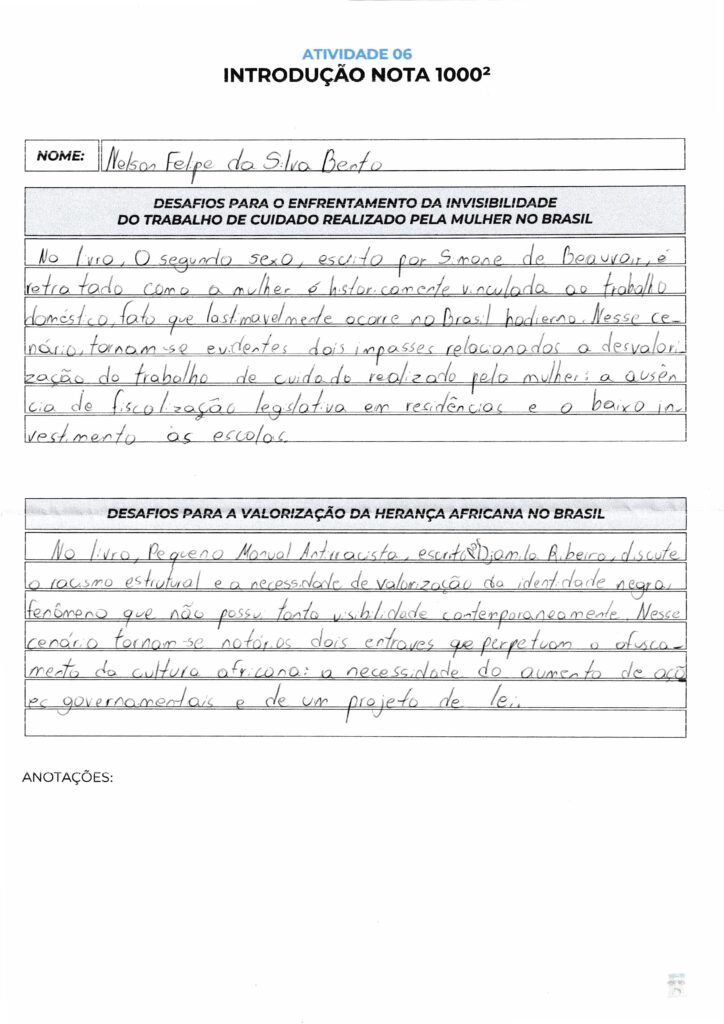 ATIVIDADE 06
INTRODUÇÃO NOTA 1000²
NOME: Nelson Felpe da Silva Bento
DESAFIOS PARA O ENFRENTAMENTO DA INVISIBILIDADE
DO TRABALHO DE CUIDADO REALIZADO PELA MULHER NO BRASIL
No livro, O segundo sexo, escrito por Simone de Beauvoir, é
retratado como a mulher é historicamente vinculada ao trabalho
doméstico, fato que lastimavelmente ocorre no Brasil hodierno. Nesse ce-
nário, tornam-se evidentes dois impasses relacionados a desvalori-
zação do trabalho de cuidado realizado pela mulher: a ausên
cia de fiscalização legislativa em residências e o baixo in-
vestimento às escolas.
DESAFIOS PARA A VALORIZAÇÃO DA HERANÇA AFRICANA NO BRASIL
No livro, Pequeno Manual Antirracista, escrito por Djamila Ribeiro, discute
o racismo estrutural e a necessidade de valorização da identidade negra,
fenômeno que não possui tanta visibilidade contemporaneamente. Nesse
cenário tornam-se notórios dois entraves que perpetuam o ofusca-
mento da cultura africana: a necessidade do aumento de açõ
es governamentais e de um projeto de lei.
ANOTAÇÕES: